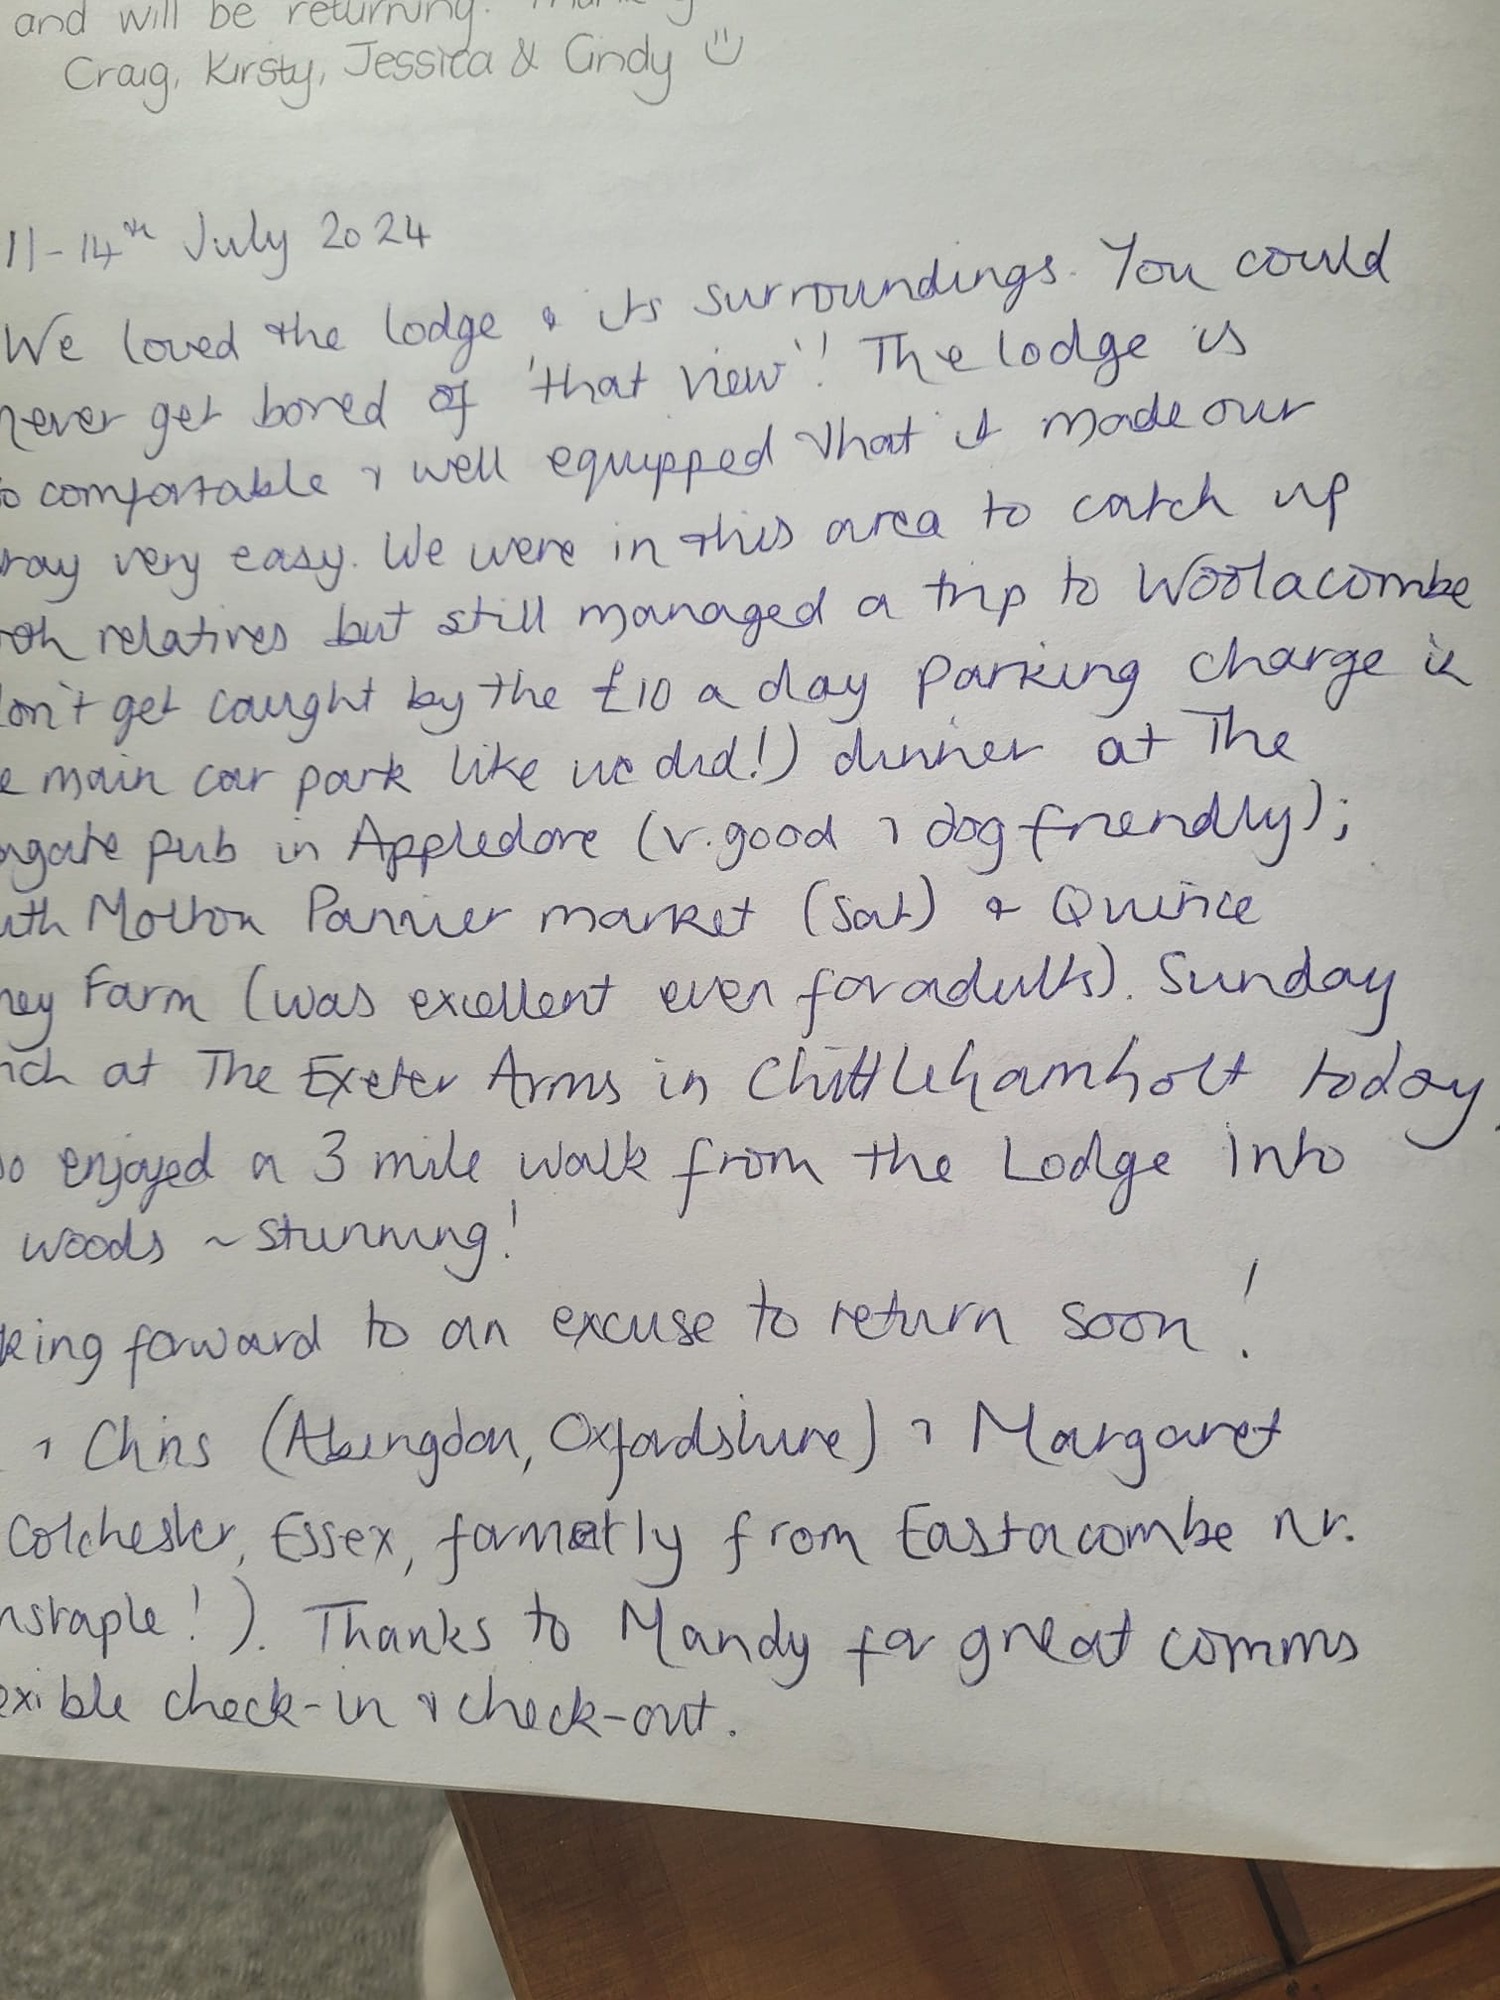 and will be returning.
Craig, Kirsty, Jessica & Cindy
11-14th July 2024
We loved the lodge & its surroundings. You could
never get bored of 'that view'! The lodge is
so comfortable & well equipped that it made our
very easy. We were in this area to catch up
relatives but still managed a trip to Woolacombe
don't get caught by the £10 a day parking charge in
main car park like we did!) dinner at The
pub in Appledore (v.good & dog friendly);
Molton Pannier market (Sat) & Quince
Farm (was excellent even for adults). Sunday
at The Exeter Arms in Chittlehamholt today.
enjoyed a 3 mile walk from the Lodge into
woods ~ stunning!
king forward to an excuse to return soon!
& Chris (Abingdon, Oxfordshire) & Margaret
Colchester, Essex, formerly from Eastacombe nr.
nstaple!). Thanks to Mandy for great comms
exible check-in & check-out.